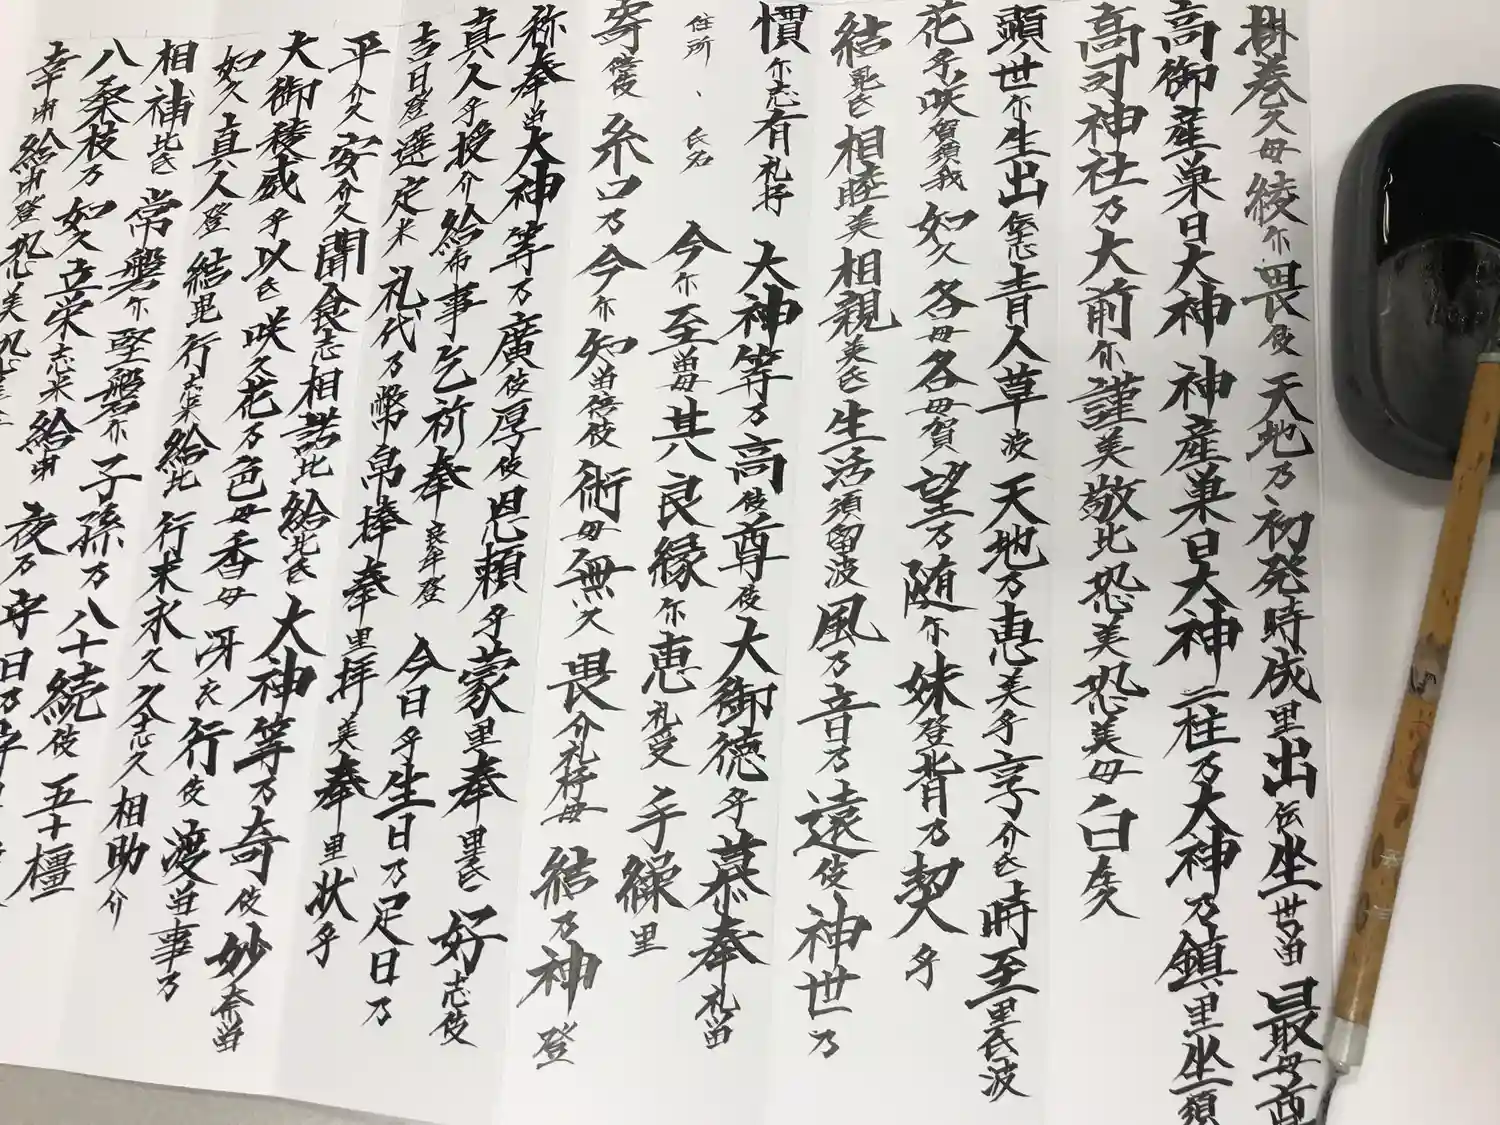 掛巻久母綾尓畏伎天地乃初発時成里出伝坐世留最母尊
高御産巣日大神神産巣日大神二柱乃大神乃鎮里坐須
高司神社乃大前尓謹美敬比恐美恐美母白左久
顕世尓生出伝志青人草波天地乃恵美乎享介氐時至里氐波
花乎咲賀須我如久各母各母賀望乃随尓妹登背乃契乎
結毘氐相睦美相親美氐生活須留波風乃音乃遠伎神世乃
慣尓志有礼抒大神等乃高伎尊伎大御徳乎慕奉礼留
住所、氏名今尓至留母其良縁尓恵礼受手繰里
寄倍伎糸口乃今尓知留倍伎術母無久畏介礼抒母結乃神登
称奉留大神等乃廣伎厚伎恩頼乎蒙里奉里氐好志伎
真人乎授介給布事乞祈奉良牟登今日乎生日乃足日乃
吉日登選定米礼代乃幣帛捧奉里拝美奉里状乎
平介久安介久聞食志相諾比給比氐大神等乃奇伎妙奈留
大御稜威乎以氐咲久花乃色母香母冴衣行伎渡留事乃
如久真人登結毘行志米給比行末永久久志久相助介
相補比氐常磐尓堅磐尓子孫乃八十続伎五十橿
八桑枝乃如久立栄志米給閇夜乃守日乃守
幸閇給閇登恐美恐美